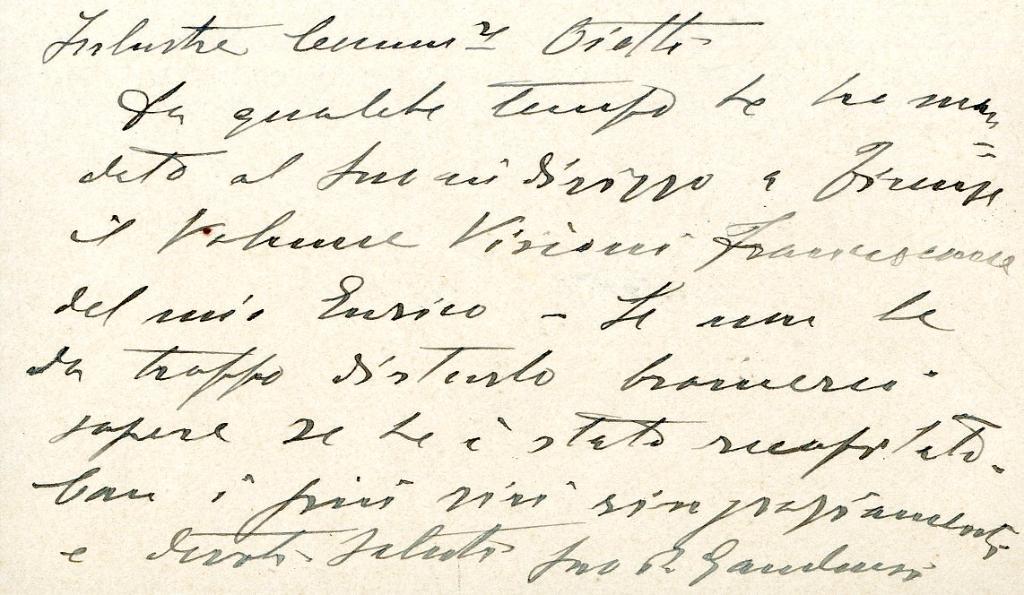 Illustre Comm.r Ojetti
Da qualche tempo Le ho man=
dato al suo indirizzo a Firenze
il Volume Visioni Francescane
del mio Enrico - Se non Le
do troppo disturbo bramerei
sapere se Le è stato recapitato.
Con i più vivi ringraziamenti
e devoti saluti suo